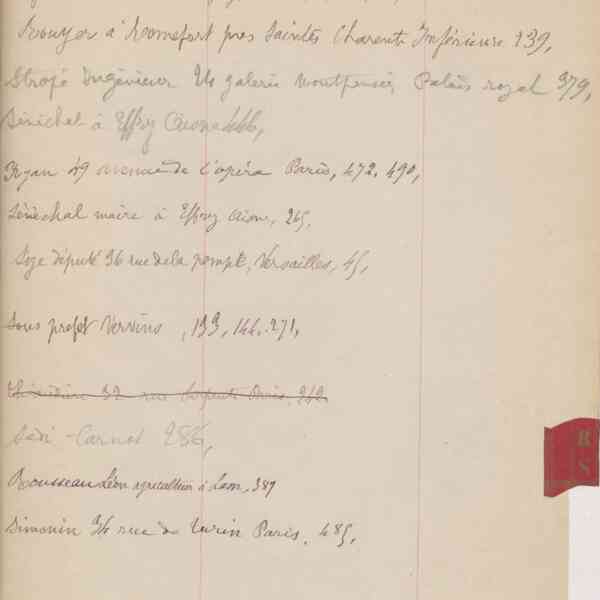 Rouyer à Romefort pres Saintes Charente Inférieure 139,
ingénieur galerie montpensier, Palais royal 379,
Sénéchal à Effry Aisne 446,
Ryan 49 avenue de l'opéra Paris, 472. 490,
Sénéchal maire à Effry Aisne, 265,
député 36 rue de la pompe, Versailles, 45,
Sous prefet Vervins, 133, 144. 271,
32 rue Serpente Paris. 212
Sadi-Carnot 286,
Rousseau Léon agriculteur à Laon, 387
Simonin 34 rue de Turin Paris. 485,
R
S